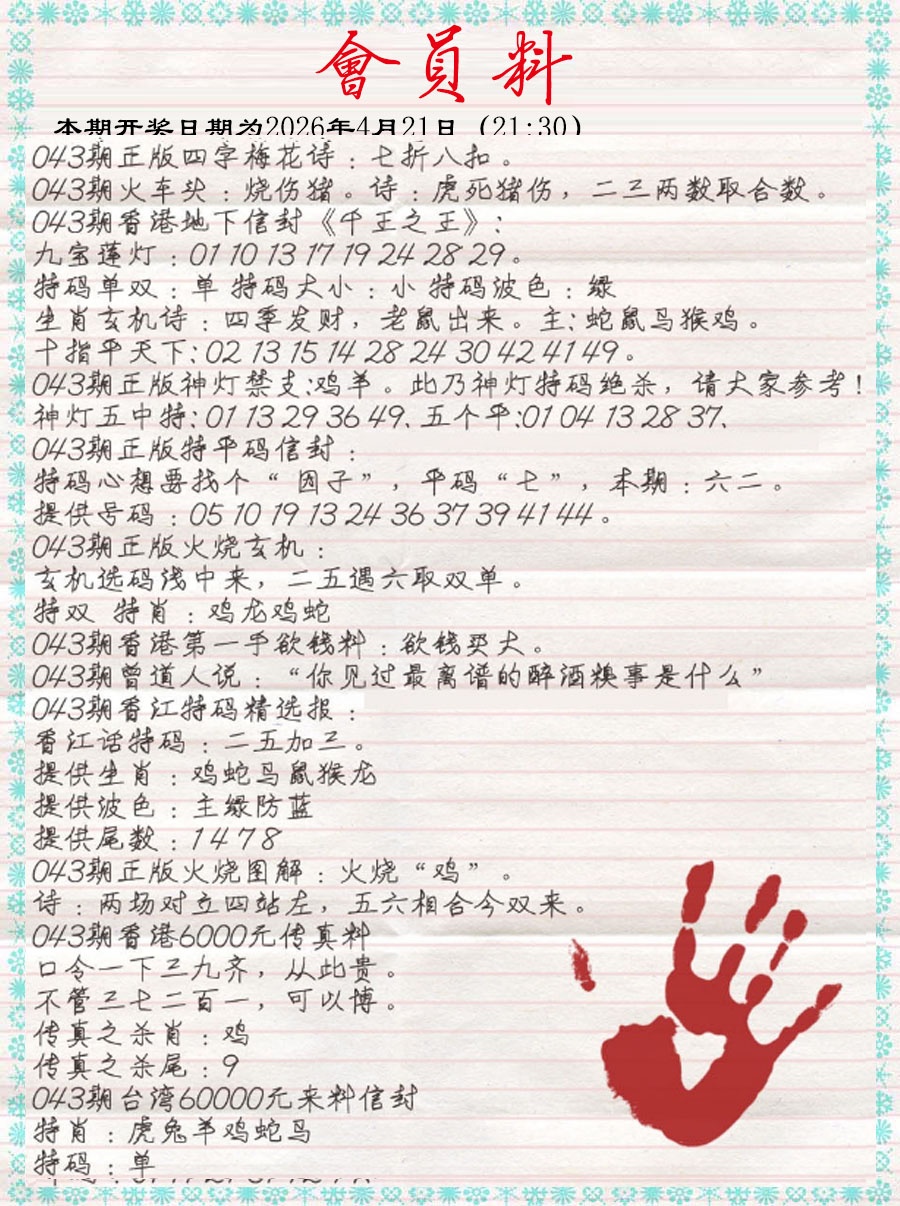 會員料
本期开奖日期为2026年4月21日（21:30）
043期正版四字梅花诗：七折八扣。
043期火车头：烧伤猪。诗：虎死猪伤，二三两数取合数。
043期香港地下信封《千王之王》：
九宝莲灯：01 10 13 17 19 24 28 29。
特码单双：单 特码大小：小 特码波色：绿
生肖玄机诗：四季发财，老鼠出来。主：蛇鼠马猴鸡。
十指平天下：02 13 15 14 28 24 30 42 41 49。
043期正版神灯禁支:鸡羊。此乃神灯特码绝杀，请大家参考！
神灯五中特：01 13 29 36 49、五个平:01 04 13 28 37、
043期正版特平码信封：
特码心想要找个“因子”，平码“七”，本期：六二。
提供号码：05 10 19 13 24 36 37 39 41 44。
043期正版火烧玄机：
玄机选码浅中来，二五遇六取双单。
特双 特肖：鸡龙鸡蛇
043期香港第一手欲钱料：欲钱买大。
043期曾道人说：“你见过最离谱的醉酒糗事是什么”
043期香江特码精选报：
香江话特码：二五加三。
提供生肖：鸡蛇马鼠猴龙
提供波色：主绿防蓝
提供尾数：1 4 7 8
043期正版火烧图解：火烧“鸡”。
诗：两场对立四站左，五六相合今双来。
043期香港6000元传真料
口令一下三九齐，从此贵。
不管三七二百一，可以博。
传真之杀肖：鸡
传真之杀尾：9
043期台湾60000元来料信封
特肖：虎兔羊鸡蛇马
特码：单